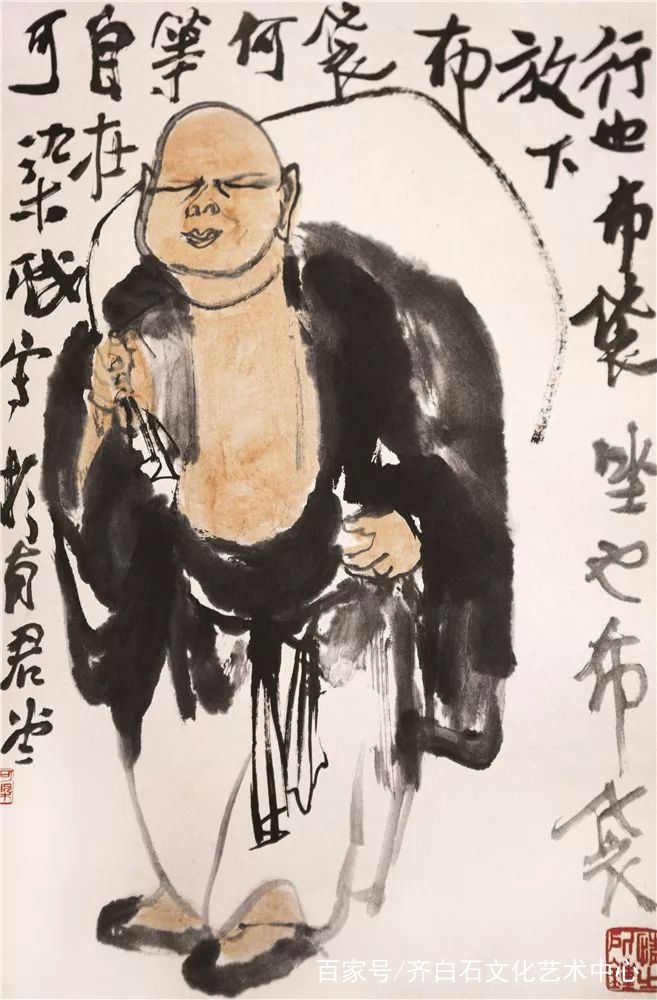 行也布袋坐也布袋
放下
布
袋
何
等
自在
可染戲写於有君堂
可染
百家号/齐白石文化艺术中心